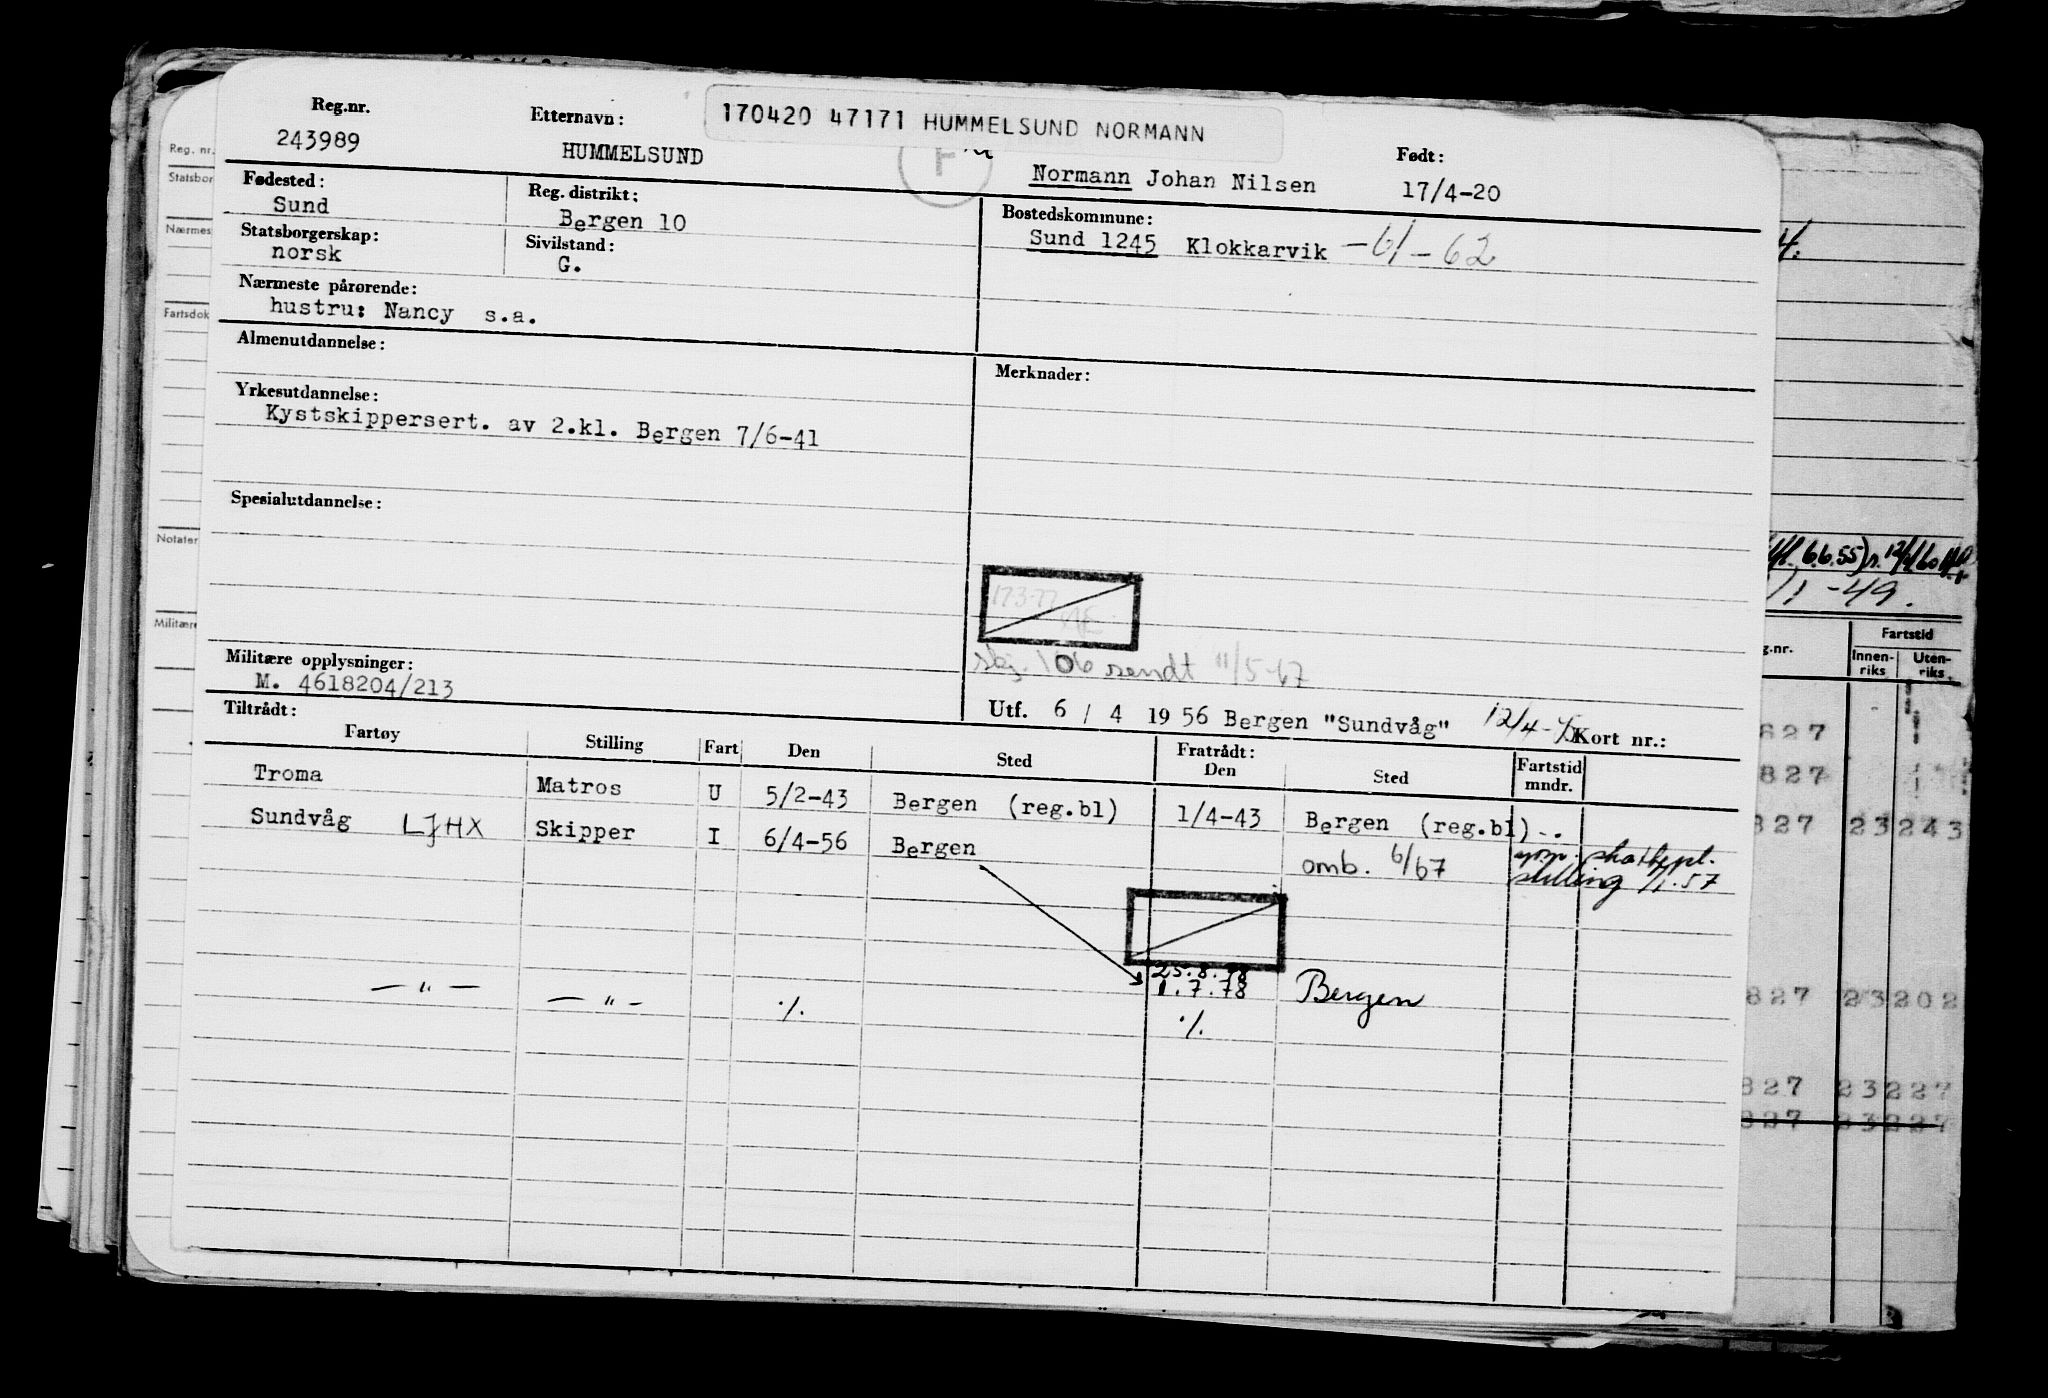 170420 47171 HUMMELSUND NORMANN
Reg.nr. Etternavn: Født:
243989 HUMMELSUND Normann Johan Nilsen 17/4-20
Fødested: Reg. distrikt: Bostedskommune:
Sund Bergen 10 Sund 1245 Klokkarvik -61-62
Statsborgerskap: Sivilstand:
norsk G.
Nærmeste pårørende:
hustru: Nancy s.a.
Almenutdannelse: Merknader:
Yrkesutdannelse:
Kystskippersert. av 2.kl. Bergen 7/6-41
Spesialutdannelse:
17.3.77
106 sendt 11/5-67
Militære opplysninger:
M. 4618204/213
Utf. 6 / 4 19 56 Bergen "Sundvåg" 12/4- Kort nr.:
Tiltrådt: Fratrådt:
Fartøy Stilling Fart Den Sted Den Sted Fartstid mndr.
Troma Matros U 5/2-43 Bergen (reg.bl) 1/4-43 Bergen (reg.bl) - .
Sundvåg LJHX Skipper I 6/4-56 Bergen omb. 6/67
stilling 1/1.57
25.8.78
— " — — " — ·/. 1.7.78 Bergen
·/.
Reg. nr.
Statsbor
Nærmes
Fartsdok
Notater
Militære
4.
6.6.55)
/1 -49.
g.nr. Fartstid
Innen-riks Uten-riks
827
827
827 23 243
827 23 202
827 23 227
827 23 227